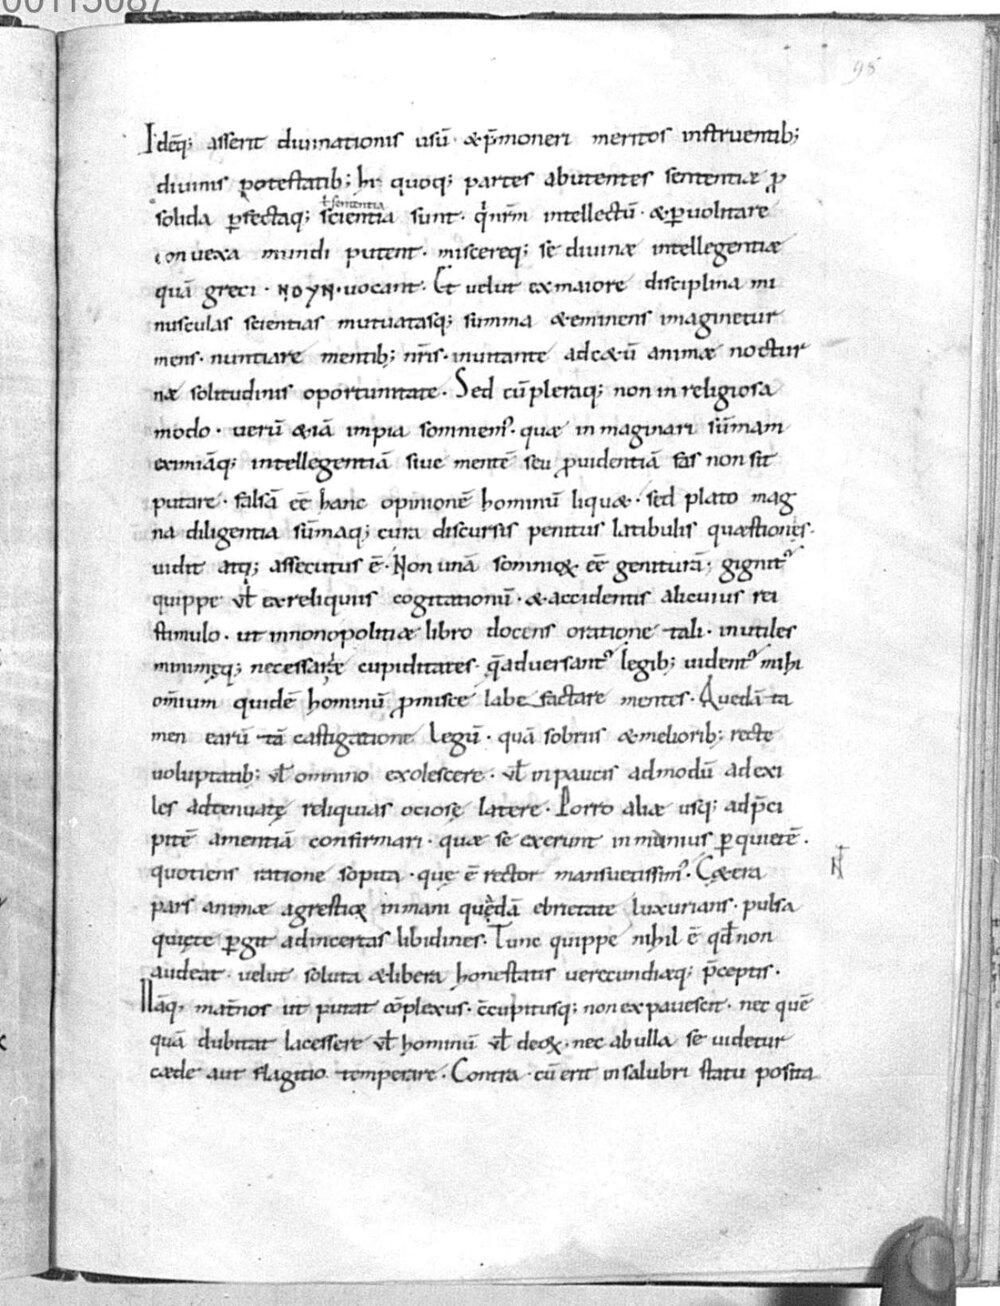 00115087
98
Ideq̄; asserit diuinationis usū · &p̄moneri meritos instruentib;
diuinis potestatib; hi quoq; partes abutentes sententiæ ꝓ
ł sententia
solida ꝑfectaq; scientia sunt · qͥ nr̄m intellectū · &ꝑuolitare
conuexa mundi putent · miscereq; se diuinæ intellegentiæ
quā greci · NOYN · uocant · Et uelut exmaiore disciplina mi
nusculas scientias mutuatasq; summa &eminens imaginetur
mens · nuntiare mentib; nr̄is · inuitante adc&ū animæ noctur
næ solitudinis oportunitate · Sed cū pleraq; non in religiosa
modo · uerū &iā impia somniem᷒ · quæ inmaginari sūmam
eximiāq; intellegentiā siue mentē seu ꝓuidentiā fas non sit
putare · falsā eē hanc opinionē hominū liqu& · sed plato mag
na diligentia sūmaq; cura discursis penitus latibulis quæstionis ·
uidit atq; assecutus ē · Non unā somnioꝝ eē geniturā · gignit᷒
quippe uł exreliquiis cogitationū · & accidentis alicuius rei
stimulo · ut innonopolitiæ libro docens oratione tali · inutiles
minimęq; necessarię cupiditates · q̄ adversant᷒ legib; uident᷒ mihi
om̄ium quidē hominū ꝓmisce labe factare mentes · Quedā ta
men earū tā castigatione legū · quā sobriis &meliorib; recte
uoluptatib; uł omnino exolescere · uł inpaucis admodū adexi
les adtenuatę reliquias ociosę latere · Porro aliæ usq; adp̄ci
pitē amentiā confirmari · quæ se exerunt inmanius ꝑ quietē ·
quotiens ratione sopita · quę ē rector mansuetissim᷒ · C&era
pars animæ agrestioꝝ inmani quędā ebrietate luxurians · pulsa
quięte ꝑgit adincertas libidines · Tunc quippe nihil ē qd̄ non
audeat · uelut soluta &libera honestatis uerecundiæq; p̄ceptis ·
Nāq; mat̄nos ut putat cōplexus · c̄cupitusq; non expauescit · nec quē
quā dubitat lacessere uł hominū uł deoꝝ · nec abulla se uidetur
cæde aut flagitio temperare · Contra · cū erit insalubri statu posita